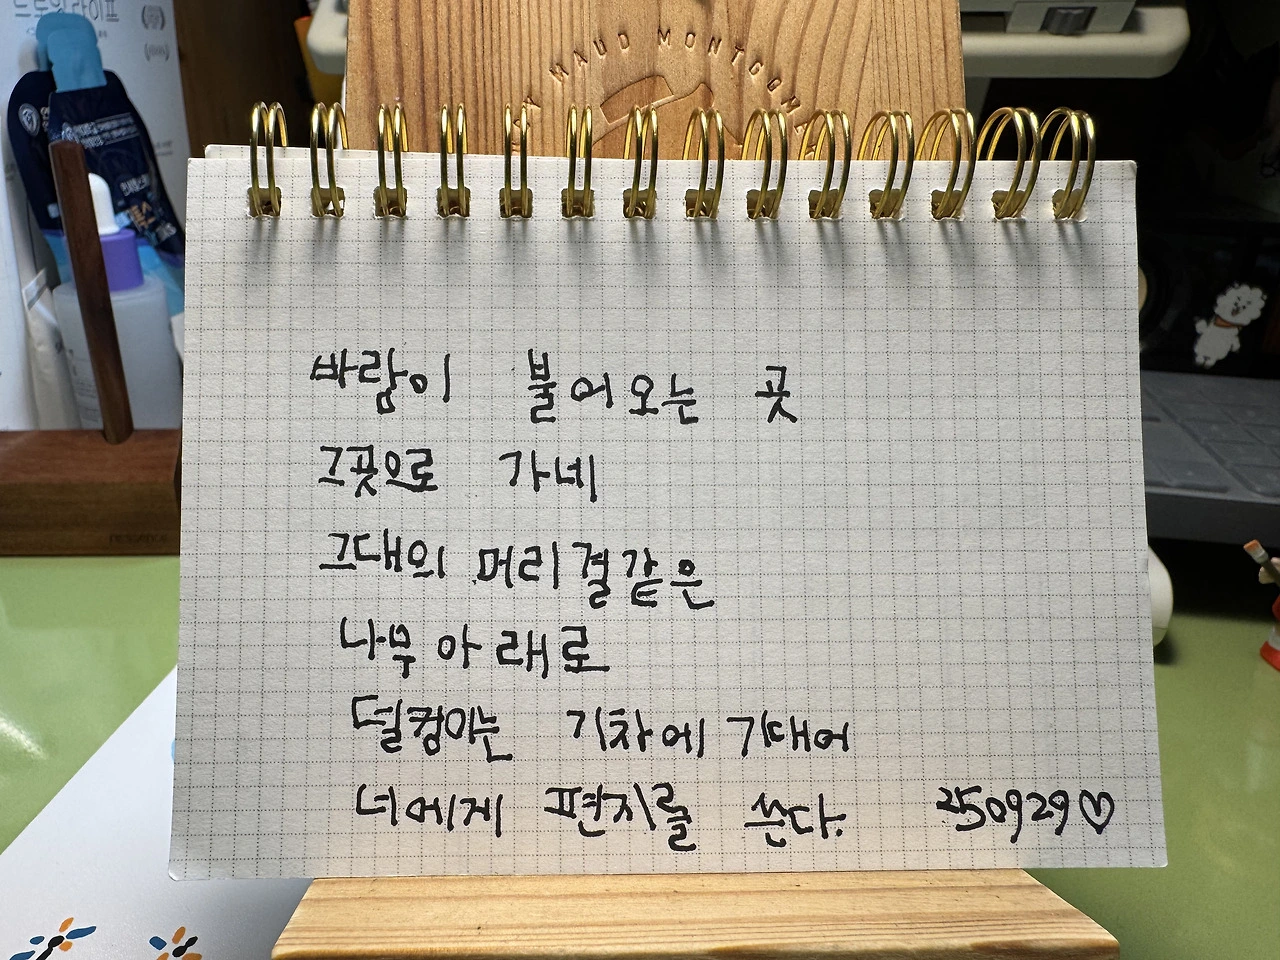 MAUD MONTGOM
바람이 불어오는 곳
그곳으로 가네
그대의 머리결같은
나무 아래로
덜컹이는 기차에 기대어
너에게 편지를 쓴다.
250929♡